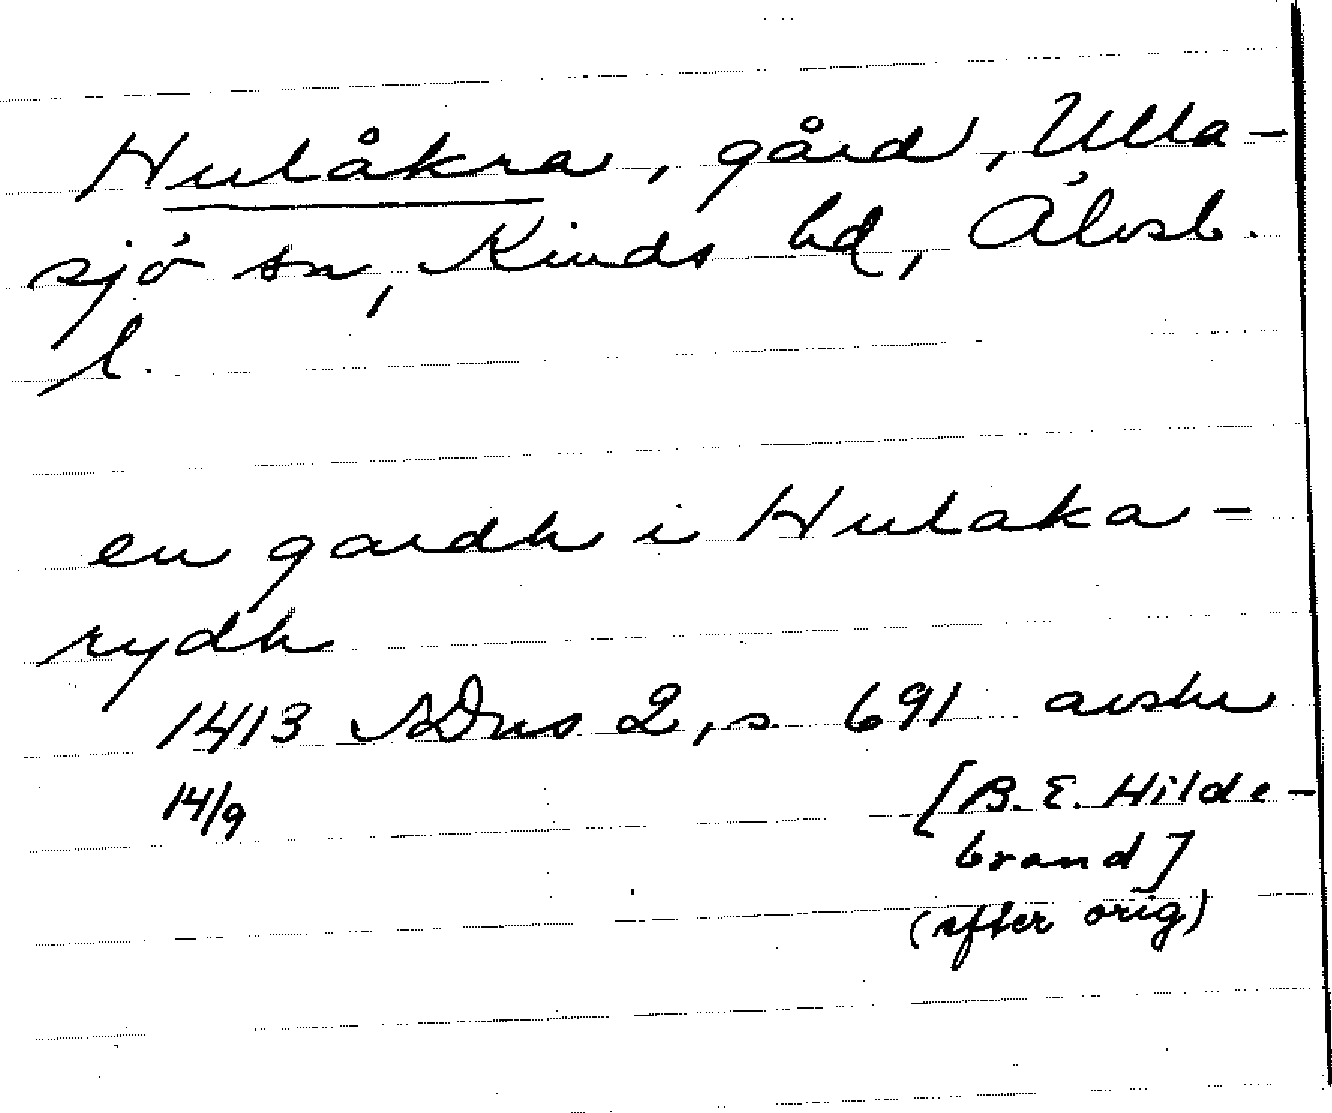 Hulåkra, gård, Ulla-
sjö sn, Kinds hd, Älvsb.
l.
en gardh i Hulaka-
rydh
1413 SDns 2, s 691 avskr
14/9
[B. E. Hilde-
brand]
(efter orig)